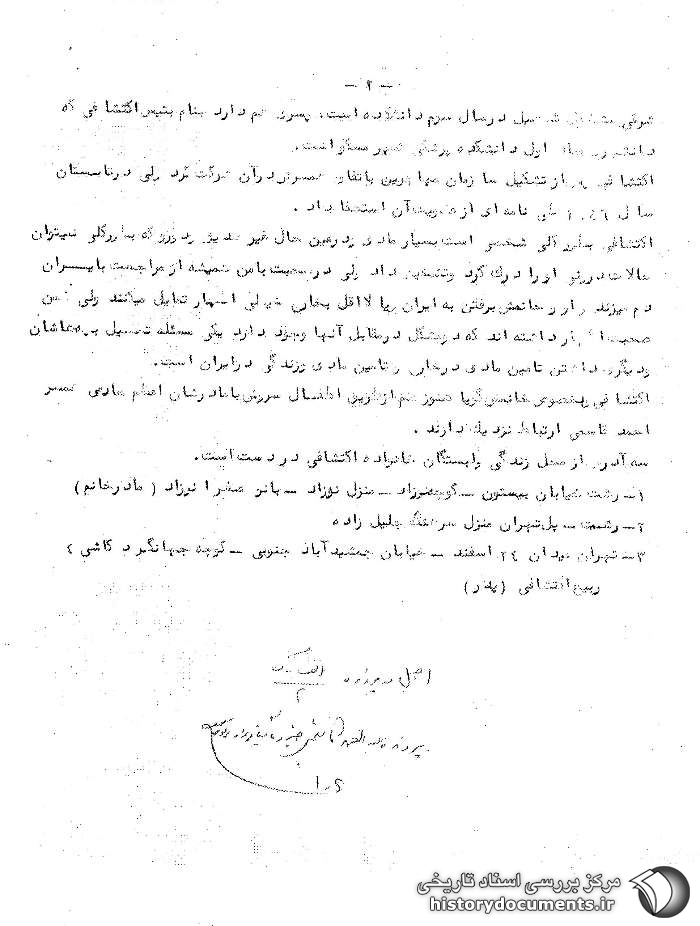 - ۲ -
شوقی مشغول تحصیل در سال سوم دانشکده است. پسری هم دارد بنام بتیس اکتشافی که
دانشجوی سال اول دانشکده پزشکی شهر مسکو است.
اکتشافی پس از تشکیل سازمان مهاجرین باتفاق همسرش در آن شرکت کرد ولی در تابستان
سال طی نامه ای از عضویت آن استعفا داد .
اکتشافی بطور کلی شخصی است بسیار مادی و در عین حال غیر صدیق و دورو که بطور کلی نمیتوان
حالات درونی او را درک کرد و تشخیص داد ولی در صحبت با من همیشه از مراجعت بایران
دم میزند و او و خانمش برفتن به ایران و یا لااقل بخارج خیلی اظهار تمایل میکنند ولی ضمن
صحبت اظهار داشته اند که دو مشکل در مقابل آنها وجود دارد یکی مسئله تحصیل بچه هاشان
و دیگری داشتن تامین مادی در خارج و تامین مادی و زندگی در ایران است.
اکتشافی و بخصوص خانمش گویا هنوز هم از طریق اطفال سروش با مادرشان اعظم صارمی همسر
احمد قاسمی ارتباط نزدیک دارند .
سه آدرس از محل زندگی وابستگان خانواده اکتشافی در دست است.
۱- رشت خیابان بیستون - کوچه نوزاد - منزل نوزاد - بانو صغرا نوزاد ( مادر خانم )
۲- رشت - پل تهران منزل سرهنگ جلیل زاده
۳- تهران میدان ۲۴ اسفند - خیابان جمشید آباد جنوبی - کوچه جهانگرد کاشی ۴
ربیع اکتشافی (پدر)
اصل در پرونده
۲
مرکز بررسی اسناد تاریخی
historydocuments.ir